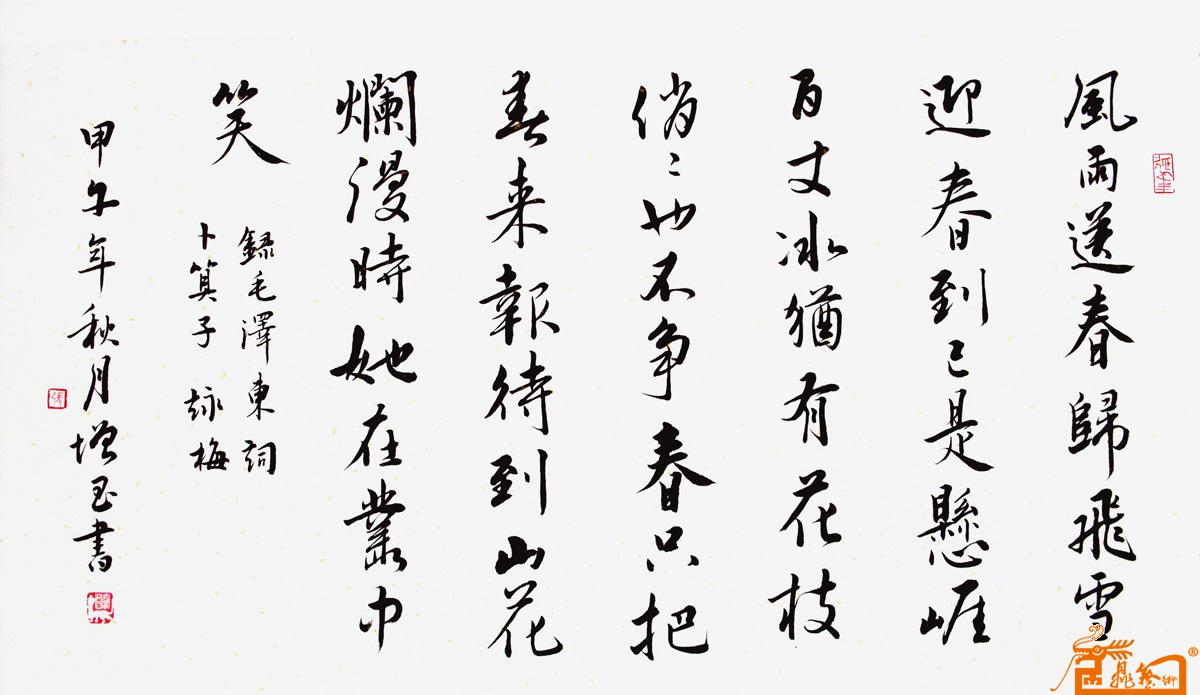 風雨送春歸飛雪
迎春到已是懸崖
百丈冰猶有花枝
俏俏也不争春只把
春来報待到山花
爛漫時她在叢中
笑
録毛澤東詞
卜算子 詠梅
甲午年秋月增玉書